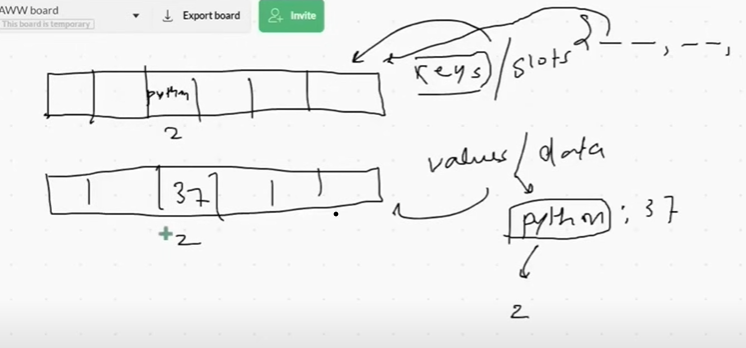 AWW board
This board is temporary
Export board
Invite
keys / slots { — —, — —,
python
2
values / data
37
python : 37
2
2